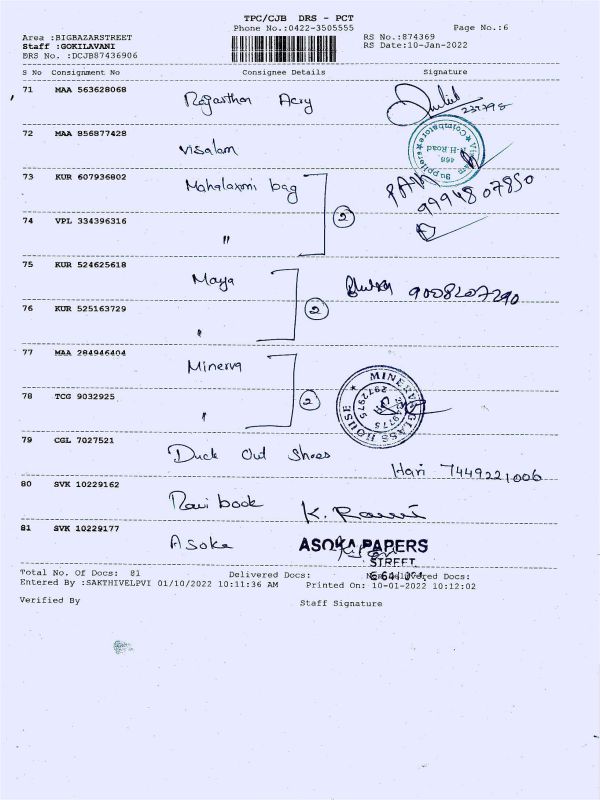 TPC/CJB DRS - PCT
Phone No.:0422-3505555
Page No.:6
Area :BIGBAZARSTREET
RS No.:874369
Staff :GOKILAVANI
RS Date:10-Jan-2022
DRS No. :DCJB87436906
S No Consignment No Consignee Details Signature
71 MAA 563628068 Rajasthan Acry
237798
72 MAA 856877428 Visalam
73 KUR 607936802 Mahalaxmi bag
9994807850
74 VPL 334396316 "
2
75 KUR 524625618 Maya
9008207290
76 KUR 525163729 "
2
77 MAA 284946404 Minerva
MINERVA GLASS HOUSE
78 TCG 9032925 "
2
79 CGL 7027521 Duck Out Shoes
Hari 7449221006
80 SVK 10229162 Ravi book K. Ravi
81 SVK 10229177 Asoka ASOKA PAPERS
STREET
Total No. Of Docs: 81 Delivered Docs: Non Delivered Docs:
Entered By :SAKTHIVELPVI 01/10/2022 10:11:36 AM Printed On: 10-01-2022 10:12:02
Verified By Staff Signature